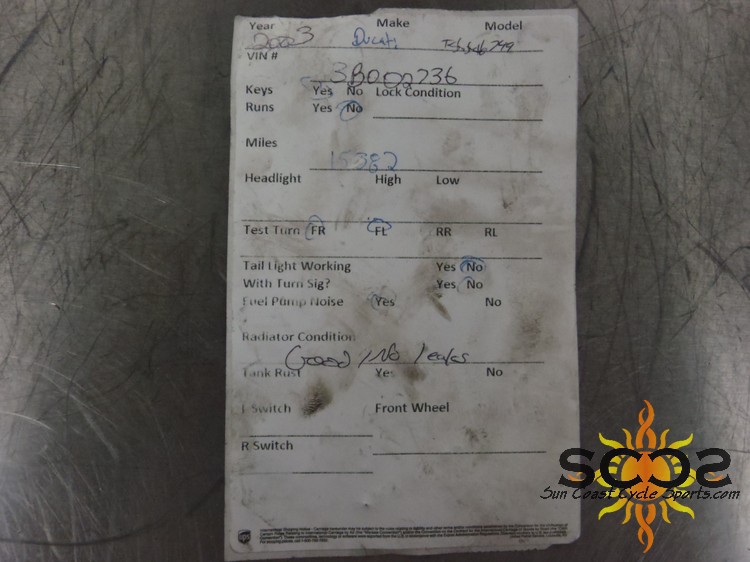 Year Make Model
2003 Ducati 749
VIN #
3B002736
Keys Yes No Lock Condition
Runs Yes No
Miles
15382
Headlight High Low
Test Turn FR FL RR RL
Tail Light Working Yes No
With Turn Sig? Yes No
Fuel Pump Noise Yes No
Radiator Condition
Good / No leaks
Tank Rust Yes No
L Switch Front Wheel
R Switch
SCCS
Sun Coast Cycle Sports.com
ups